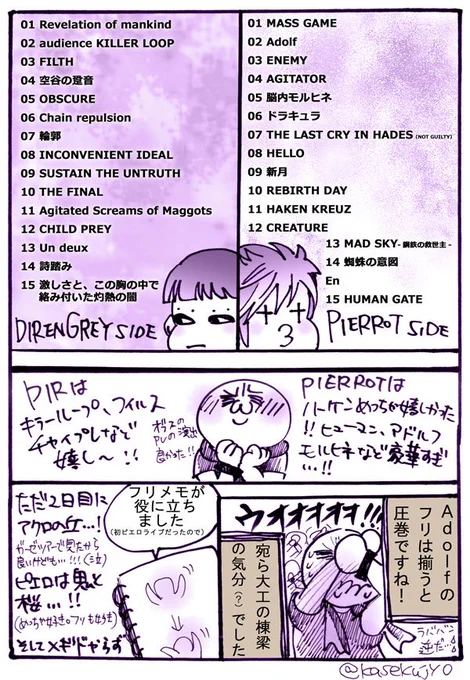 01 Revelation of mankind
02 audience KILLER LOOP
03 FILTH
04 空谷の跫音
05 OBSCURE
06 Chain repulsion
07 輪郭
08 INCONVENIENT IDEAL
09 SUSTAIN THE UNTRUTH
10 THE FINAL
11 Agitated Screams of Maggots
12 CHILD PREY
13 Un deux
14 詩踏み
15 激しさと、この胸の中で
絡み付いた灼熱の闇
DIRENGREY SIDE
01 MASS GAME
02 Adolf
03 ENEMY
04 AGITATOR
05 脳内モルヒネ
06 ドラキュラ
07 THE LAST CRY IN HADES (NOT GUILTY)
08 HELLO
09 新月
10 REBIRTH DAY
11 HAKEN KREUZ
12 CREATURE
13 MAD SKY-鋼鉄の救世主-
14 蜘蛛の意図
En
15 HUMAN GATE
PIERROT SIDE
DIRは
キラーループ、フィルス
チャイプレなど
嬉し〜!!
オブスの
PVの演出
良かった!!
PIERROTは
ハーケンめっちゃ嬉しかった
!!ヒューマン、アドルフ
モルヒネなど豪華すぎ
…!!
ただ2日目に
アクロの丘…!
(ガーゼツアーで見たから
良いけども…!!!(泣)
ピエロは鬼と
桜…!!
(めっちゃ好き。フリも好き)
そしてメギドやらず
フリメモが
役に立ち
ました
(初ピエロライブだったので)
ウオオオオオ!!
Adolfの
フリは揃うと
圧巻ですね!
宛ら大工の棟梁
の気分(?)でした
ラババン
逆だ…
@kasekujyo